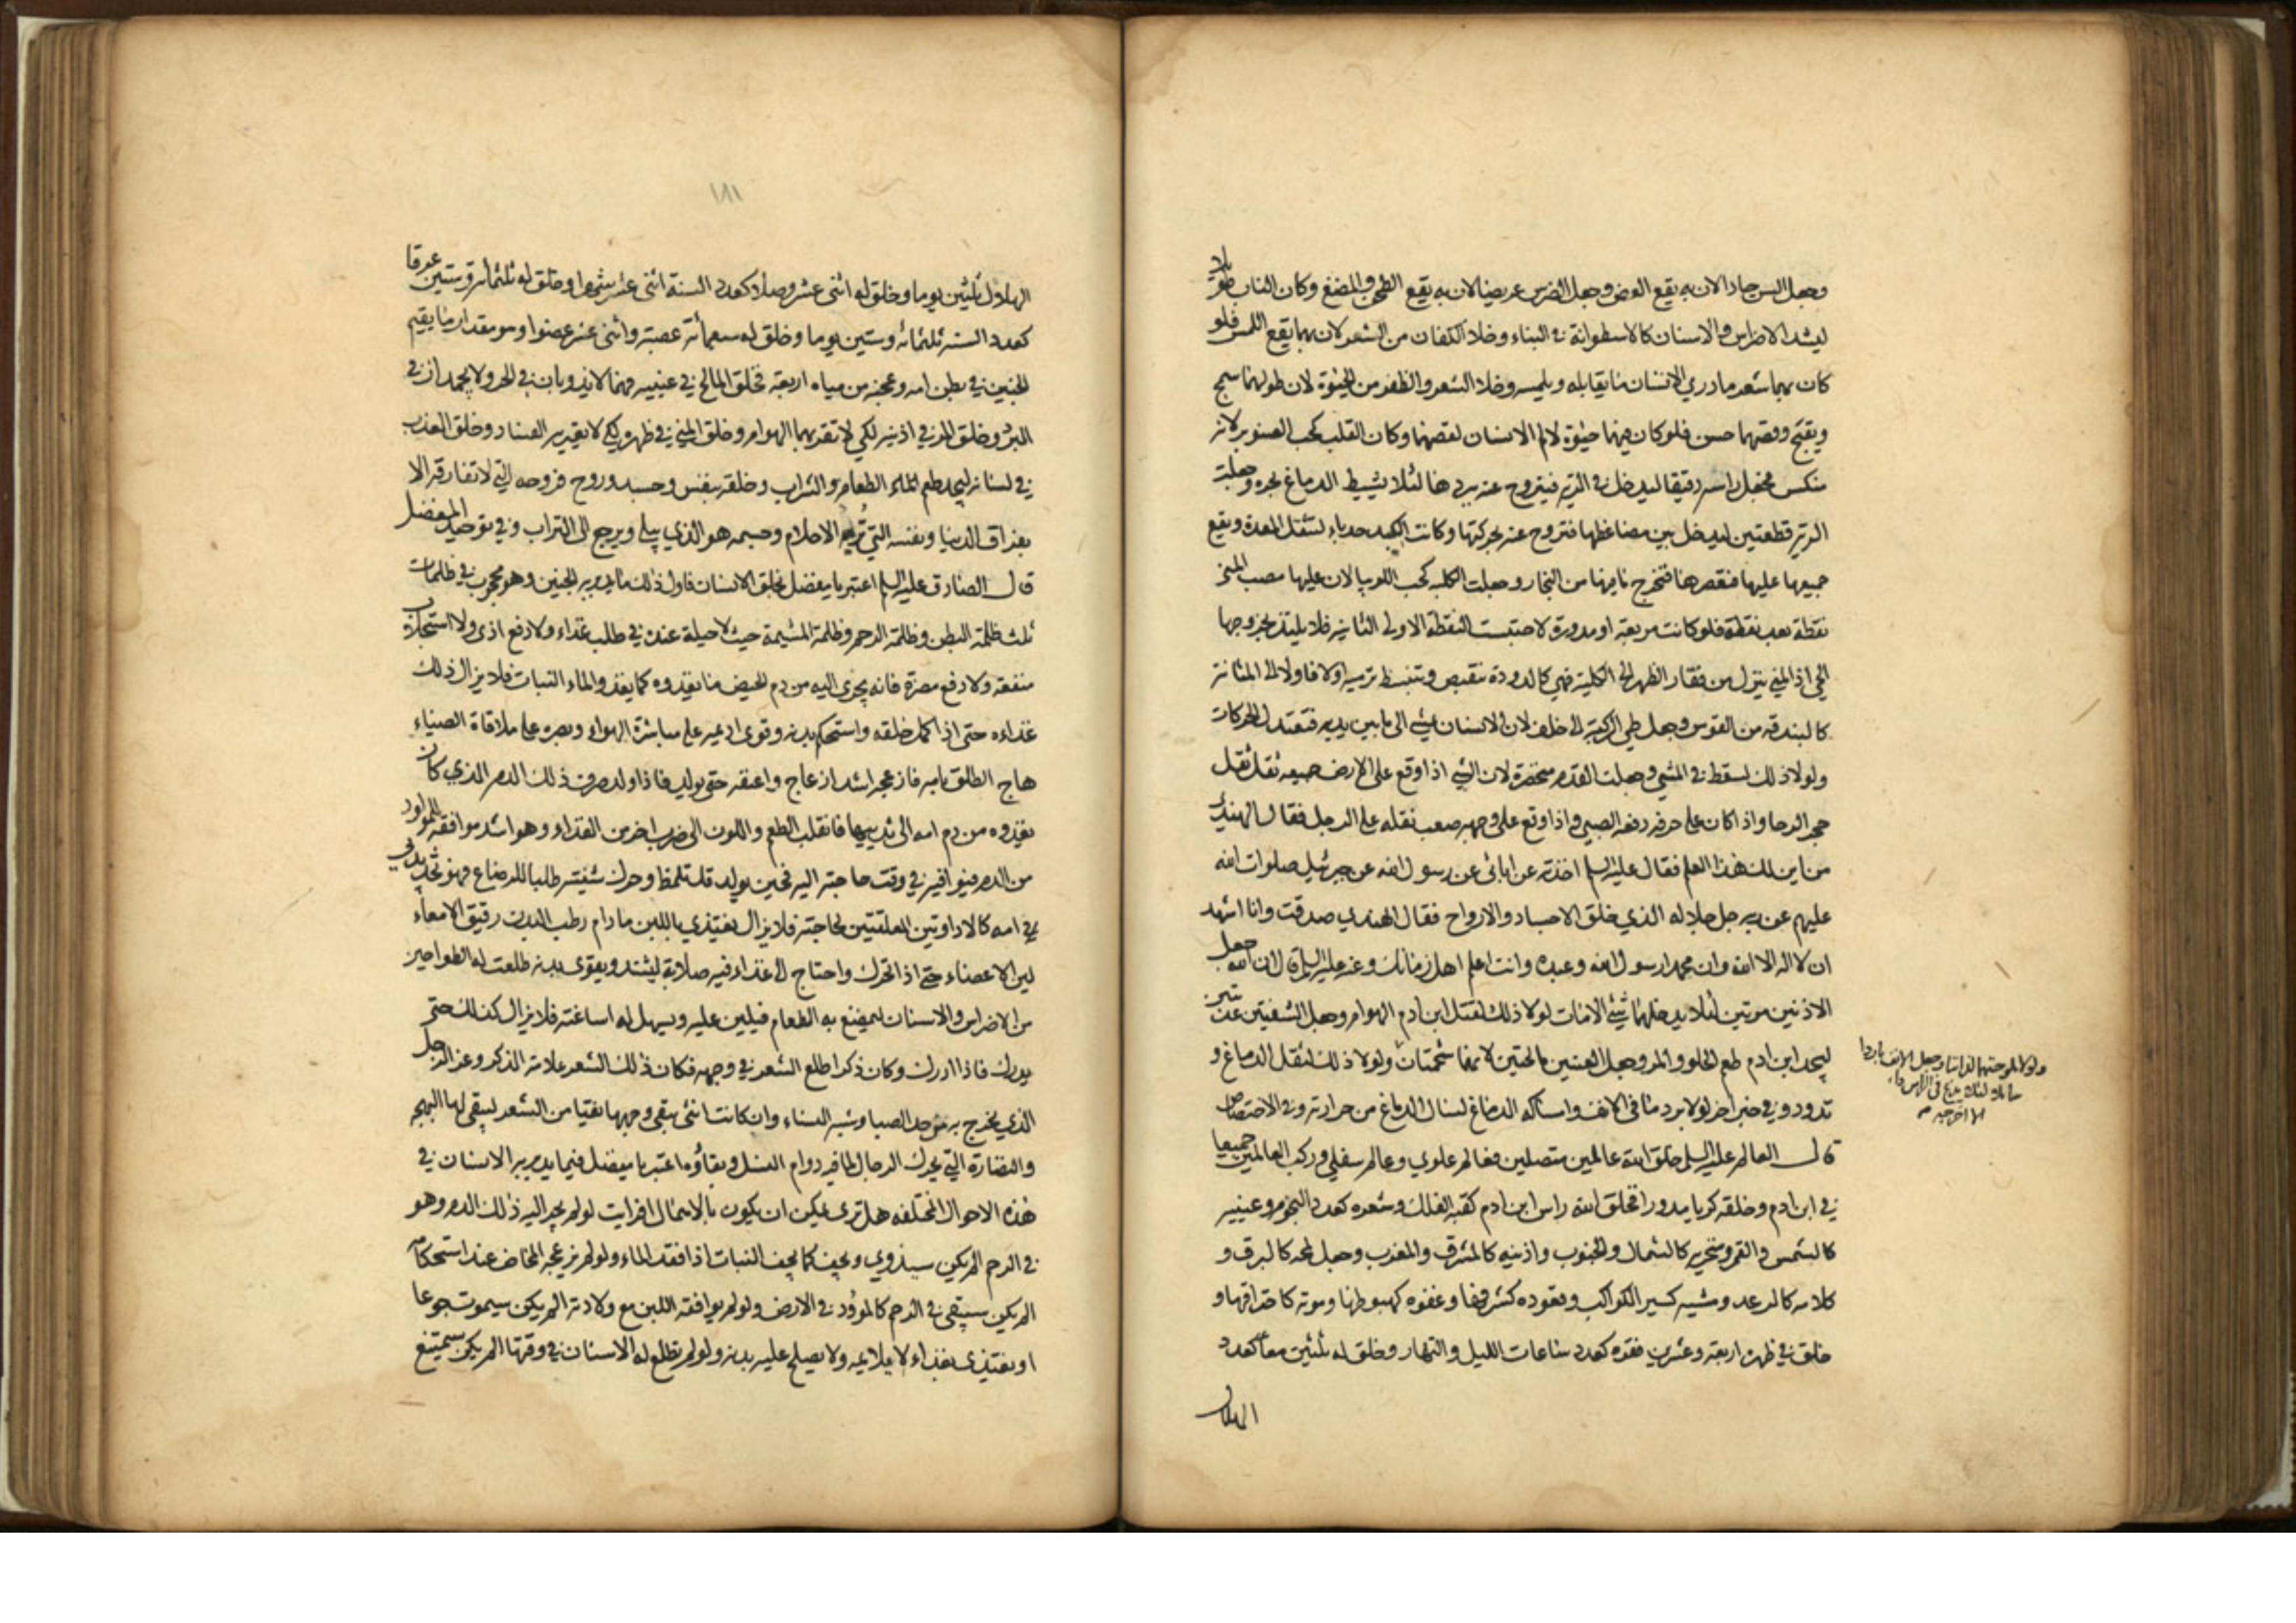 وجعل السن حادا لان به يقع العض وجعل الضرس عريضا لان به يقع الطحن والمضغ وكان الناب طويلا
ليشد الاضراس والاسنان كالاسطوانة في البناء وخلا الكفان من الشعر لان بهما يقع اللمس فلو
كان بهما شعر ما دري الانسان ما يقابله ويلمسه وخلا الشعر والظفر من الحيوة لان طولهما سمج
ويقبح وقصهما حسن فلو كان فيهما حيوة لالم الانسان لقصهما وكان القلب كحب الصنوبر لانه
منكس فجعل راسه رقيقا ليدخل في الرية فيتروح عنه ببردها لئلا يشيط الدماغ بحره وجعلت
الرية قطعتين ليدخل بين مضاغطها فتروح عنه بحركتها وكانت الكبد حدباء لتثقل المعدة ويقع
جميعها عليها فتعصرها فتخرج ما فيها من البخار وجعلت الكلية كحب اللوبيا لان عليها مصب المني
نقطة بعد نقطة فلو كانت مربعة او مدورة لاحتبست النقطة الاولى الثانية فلا يلتذ بخروجها
الحي اذ المني ينزل من فقار الظهر الى الكلية فهي كالدودة تنقبض وتنبسط ترميه اولا فاولا الى المثانة
كالبندقة من القوس وجعل طي الركبة الى خلف لان الانسان يمشي الى ما بين يديه فتعتدل الحركات
ولولا ذلك لسقط في المشي وجعلت القدم مخصرة لان الشي اذا وقع على الارض جميعه ثقل ثقل
حجر الرحا واذا كان على حرفه دفعه الصبي واذا وقع على وجهه صعب نقله على الرجل فقال الهندي
من اين لك هذا العلم فقال عليه السلم اخذته عن ابائي عن رسول الله عن جبرئيل صلوات الله
عليهم عن ربه جل جلاله الذي خلق الاجساد والارواح فقال الهندي صدقت وانا اشهد
ان لا اله الا الله وان محمدا رسول الله وعبده وانت اعلم اهل زمانك وعنه عليه السلم قال ان الله جعل
الاذنين مرتين لئلا يدخلهما شيء الا مات لولا ذلك لقتل ابن ادم الهوام وجعل الشفتين عذبتين
ليجد ابن ادم طعم الحلو والمر وجعل العينين مالحتين لانهما شحمتان ولولا ذلك لثقل الدماغ و
تدود وفي خبر اخر لولا برد ما في الانف وامساكه الدماغ لسال الدماغ من حرارته وفي الاختصاص
قال العالم عليه السلم خلق الله عالمين متصلين فعالم علوي وعالم سفلي وركب العالمين جميعا
في ابن ادم وخلقه كريا مدورا فخلق الله راس ابن ادم كقبة الفلك وشعره كعدد النجوم وعينيه
كالشمس والقمر ومنخريه كالشمال والجنوب واذنيه كالمشرق والمغرب وجعل لمحه كالبرق و
كلامه كالرعد ومشيه كسير الكواكب وقعوده كشرفها وغفوه كهبوطها وموته كاحتراقها و
خلق في ظهره اربعة وعشرين فقرة كعدد ساعات الليل والنهار وخلق له ثلثين معا كعدد
الهلال
ولولا ملوحتهما لذابتا وجعل الانف باردا
سائلا لئلا يدع في الراس داء
الا اخرجه
١٨١
الهلال ثلثين يوما وخلق له اثنى عشر وصلا كعدد السنة اثنى عشر شهرا وخلق له ثلثمائة وستين عرقا
كعدد السنة ثلثمائة وستين يوما وخلق له سبعمائة عصبة واثنى عشر عضوا وهو مقدار ما يقيم
الجنين في بطن امه وعجنه من مياه اربعة فخلق المالح في عينيه فهما لا يذوبان في الحر ولا يجمدان في
البرد وخلق المر في اذنيه لكي لا تقربهما الهوام وخلق المني في ظهره لكي لا يعتريه الفساد وخلق العذب
في لسانه ليجد طعم الماء الطعام والشراب وخلقه بنفس وجسد وروح فروحه التي لا تفارقه الا
بفراق الدنيا ونفسه التي تريه الاحلام وجسمه هو الذي يبلى ويرجع الى التراب وفي توحيد المفضل
قال الصادق عليه السلم اعتبر يا مفضل بخلق الانسان فاول ذلك ما يدبر به الجنين وهو محجوب في ظلمات
ثلث ظلمة البطن وظلمة الرحم وظلمة المشيمة حيث لا حيلة عنده في طلب غذاء ولا دفع اذى ولا استجلاب
منفعة ولا دفع مضرة فانه يجرى اليه من دم الحيض ما يغذوه كما يغذو الماء النبات فلا يزال ذلك
غذاءه حتى اذا كمل خلقه واستحكم بدنه وقوى اديمه على مباشرة الهواء وبصره على ملاقاة الضياء
هاج الطلق بامه فازعجه اشد ازعاج واعنفه حتى يولد فاذا ولد صرف ذلك الدم الذي كان
يغذوه من دم امه الى ثدييها فانقلب الطعم واللون الى ضرب اخر من الغذاء وهو اشد موافقة للمولود
من الدم فيوافيه في وقت حاجته اليه فحين يولد قد تلمظ وحرك شفتيه طلبا للرضاع فهو يجد ثديي
امه كالاداوتين المعلقتين لحاجته فلا يزال يغتذي باللبن ما دام رطب البدن رقيق الامعاء
لين الاعضاء حتى اذا تحرك واحتاج الى غذاء فيه صلابة ليشتد ويقوى بدنه طلعت له الطواحين
من الاضراس والاسنان ليمضغ به الطعام فيلين عليه ويسهل له اساغته فلا يزال كذلك حتى
يدرك فاذا ادرك وكان ذكرا طلع الشعر في وجهه فكان ذلك الشعر علامة الذكر وعز الرجل
الذي يخرج به من حد الصبا وشبه النساء وان كانت انثى يبقى وجهها نقيا من الشعر ليبقى لها البهجة
والنضارة التي يحرك الرجال لما فيه دوام النسل وبقاؤه اعتبر يا مفضل فيما يدبر به الانسان في
هذه الاحوال المختلفة هل ترى يمكن ان يكون بالاهمال افرايت لو لم يجر اليه ذلك الدم وهو
في الرحم الم يكن سيذوي ويجف كما يجف النبات اذا فقد الماء ولو لم يزعجه المخاض عند استحكامه
الم يكن سيبقى في الرحم كالموؤد في الارض ولو لم يوافقه اللبن مع ولادته الم يكن سيموت جوعا
او يغتذي بغذاء لا يلايمه ولا يصلح عليه بدنه ولو لم تطلع له الاسنان في وقتها الم يكن سيمتنع